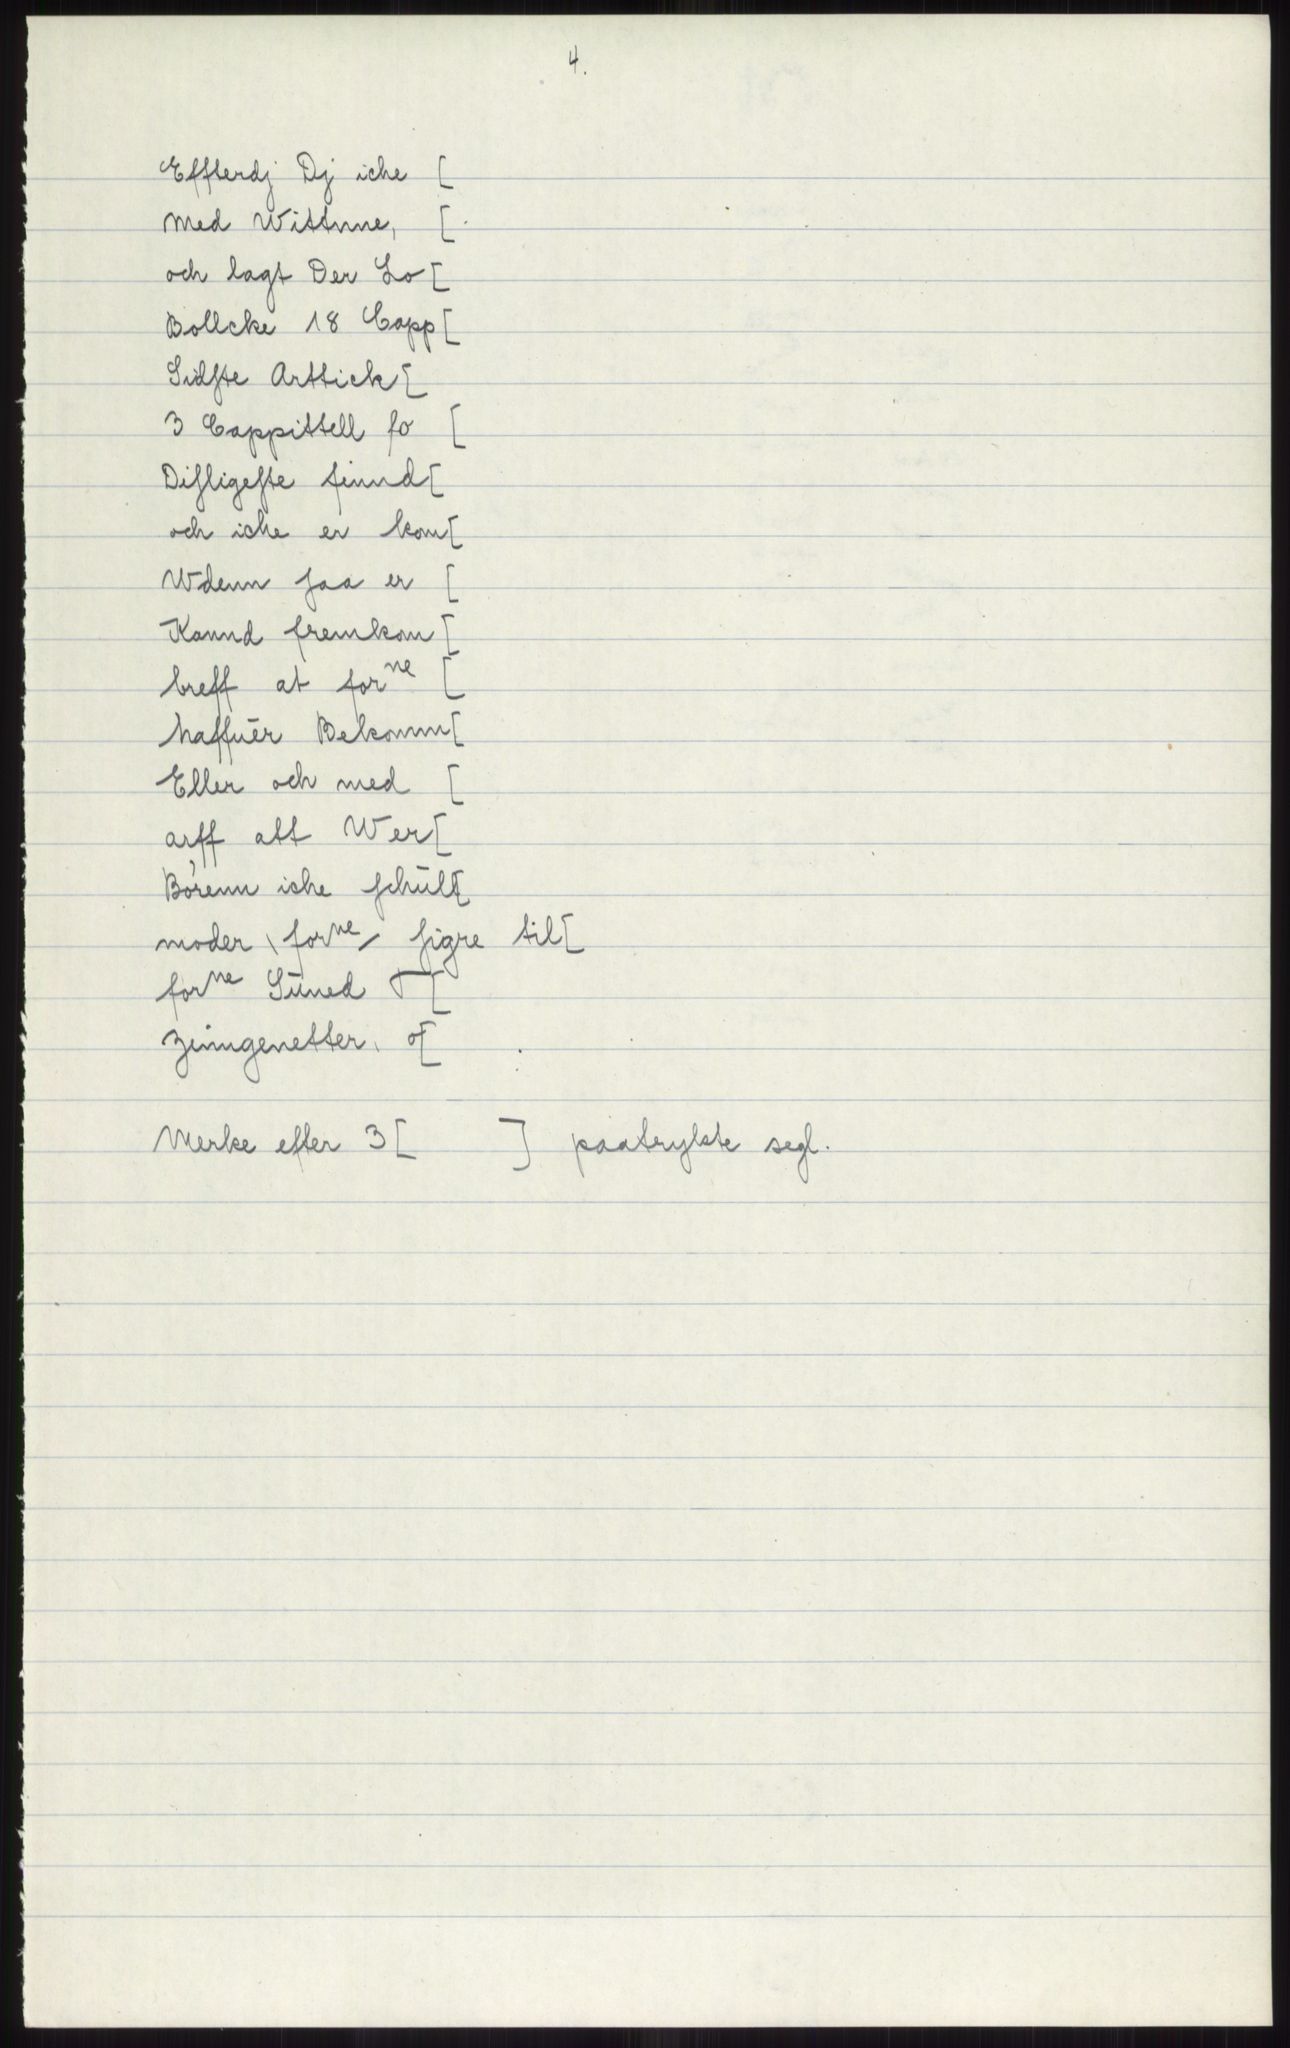 4.
Effterdj Dj iche [
med Wittnne, [
och lagt Der Lo [
Bollcke 18 Capp [
Sidſte Arttick [
3 Cappittell ſo [
Diſligeſte finnd [
och iche er kom [
Wdenn ſaa er [
Kannd fremkom [
breff at forne [
haffuĕr Bekomm [
Eller och med [
arff att Wer [
Börenn iche ſchŭll [
moder \ forne / ſigre til [
forne Sŭned [
Zeimgenetter, of [
Merke efter 3 [ ] paatrykte segl.